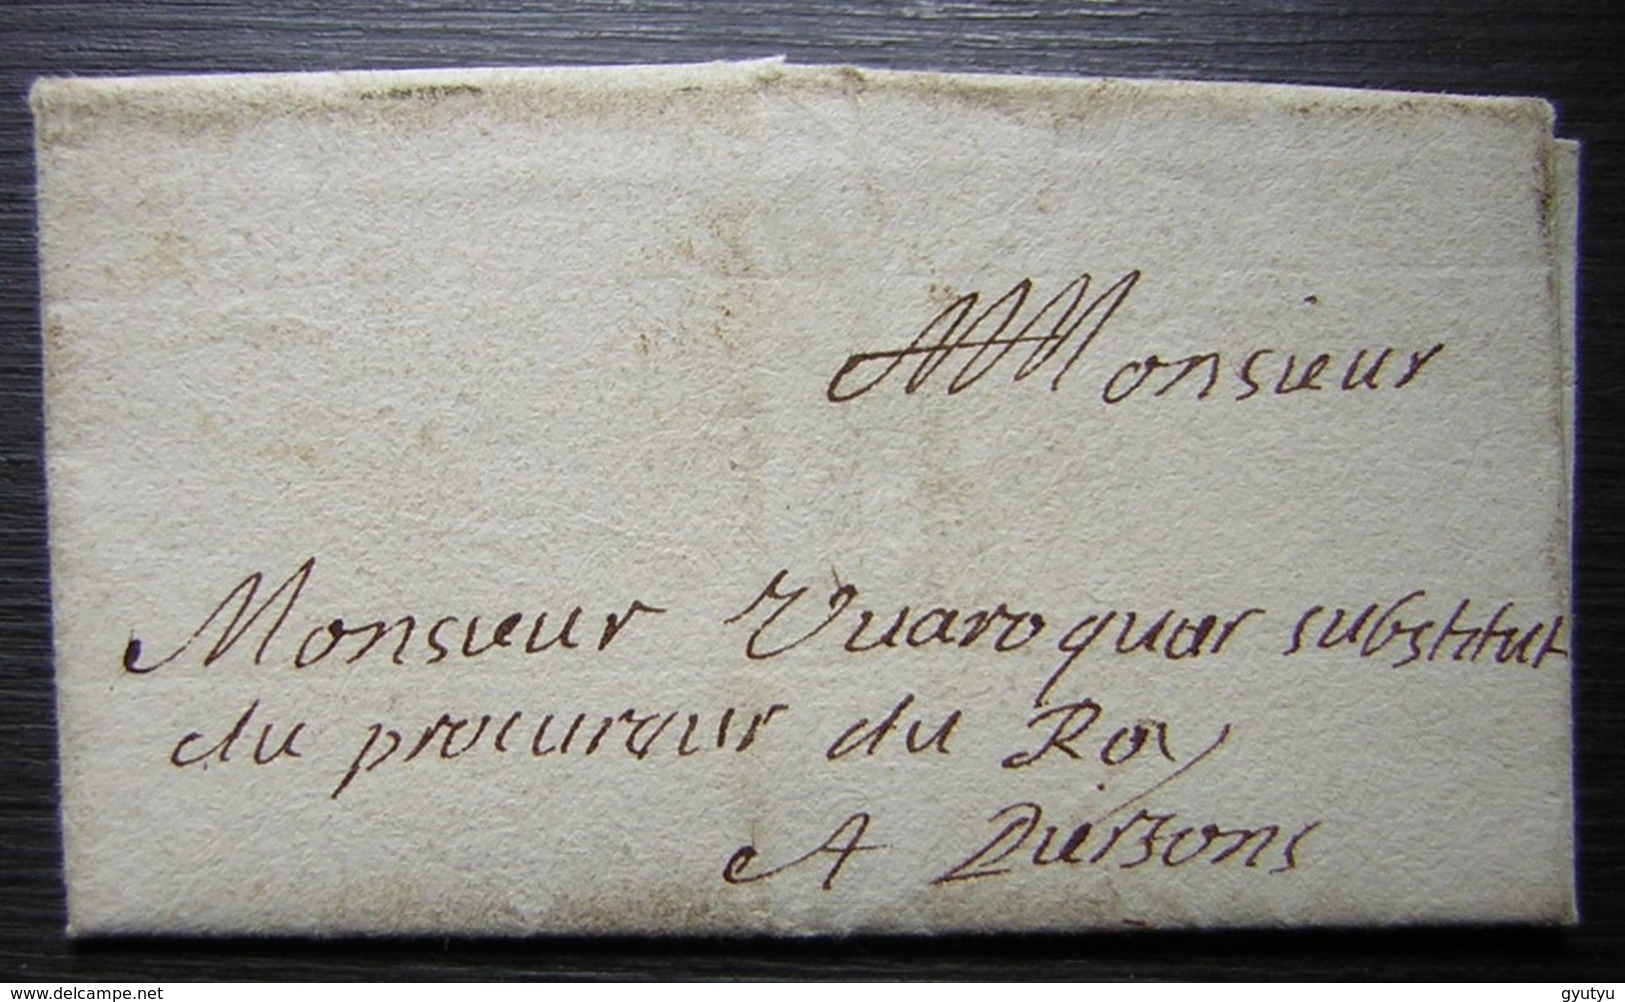 Monsieur
Monsieur Vuaroquer substitut
du procureur du Roy
A Vierzons
www.delcampe.net
gyutyu